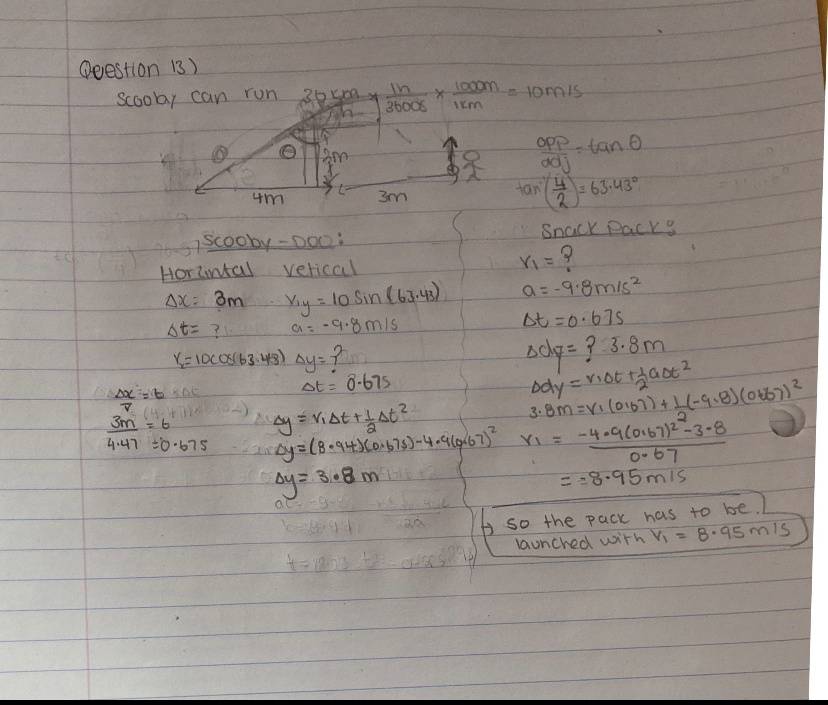 Question 13)
Scooby can run 36 km × 1h/3600s × 1000m/1km = 10m/s
h
θ θ 2m
4m 3m
opp/adj = tanθ
tan⁻(4/2) = 63.43°
Scooby-Doo:
Horizntal Vetical
Δx = 3m V₁y = 10 sin(63.43)
Δt = ? a = -9.8m/s
V₁ = 10cos(63.43) Δy = ?
Δt = 0.67s
Δx = t
V
3m = t
4.47 = 0.67s
Δy = V₁Δt + ½Δt²
Δy = (8.94)(0.67s) - 4.9(0.67)²
Δy = 3.8 m
Snack Pack:
V₁ = ?
a = -9.8m/s²
Δt = 0.67s
Δdy = ? 3.8m
Δdy = V₁Δt + ½aΔt²
3.8m = V₁(0.67) + ½(-9.8)(0.67)²
V₁ = -4.9(0.67)² - 3.8
0.67
= -8.95m/s
↳ so the pack has to be
launched with V₁ = 8.95 m/s